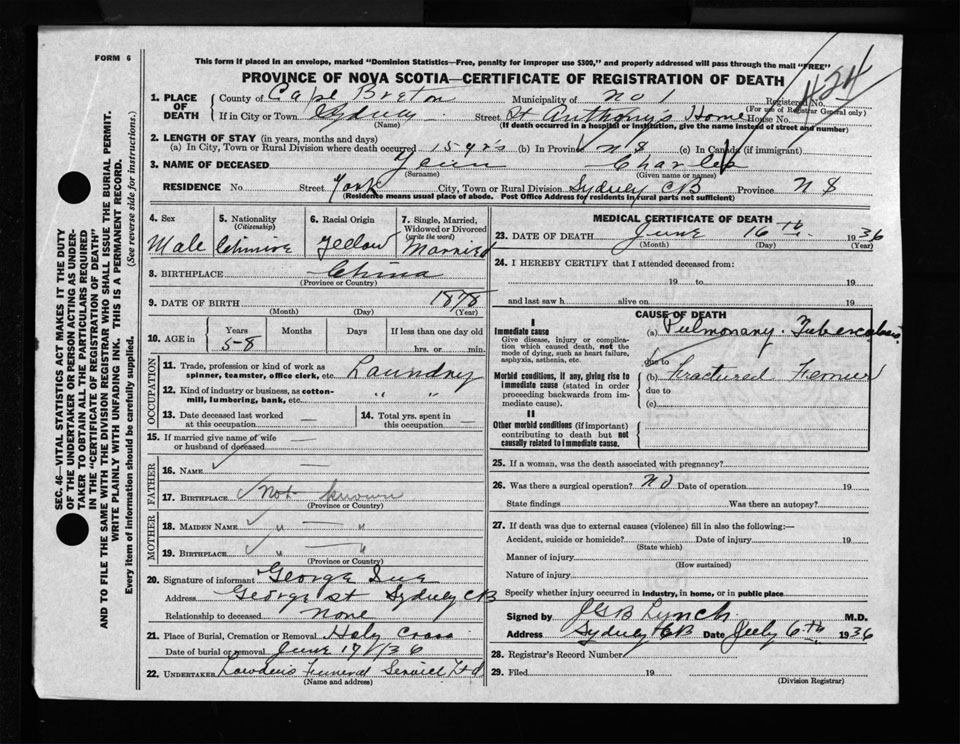 FORM 6
This form if placed in an envelope, marked "Dominion Statistics—Free, penalty for improper use $300," and properly addressed will pass through the mail "FREE"
PROVINCE OF NOVA SCOTIA—CERTIFICATE OF REGISTRATION OF DEATH
424
1. PLACE OF DEATH
County of Cape Breton Municipality of No 1 Registered No.
(For use of Registrar General only)
If in City or Town Sydney Street St Anthony's Home House No.
(Name) (If death occurred in a hospital or institution, give the name instead of street and number)
2. LENGTH OF STAY (in years, months and days)
(a) In City, Town or Rural Division where death occurred 15 yrs (b) In Province N S (c) In Canada (if immigrant)
3. NAME OF DECEASED Charles
(Surname) (Given name or names)
RESIDENCE No. Street York City, Town or Rural Division Sydney CB Province N S
(Residents means usual place of abode. Post Office Address for residents in rural parts not sufficient)
4. Sex Male
5. Nationality (Citizenship) Chinese
6. Racial Origin Yellow
7. Single, Married, Widowed or Divorced (write the word) Married
8. BIRTHPLACE China
(Province or Country)
9. DATE OF BIRTH 1878
(Month) (Day) (Year)
10. AGE in Years 58 Months Days If less than one day old hrs. or min.
OCCUPATION
11. Trade, profession or kind of work as spinner, teamster, office clerk, etc. Laundry
12. Kind of industry or business, as cotton-mill, lumbering, bank, etc. " "
13. Date deceased last worked at this occupation —
14. Total yrs. spent in this occupation —
15. If married give name of wife or husband of deceased —
FATHER
16. NAME —
17. BIRTHPLACE Not known
(Province or Country)
MOTHER
18. MAIDEN NAME " — "
19. BIRTHPLACE " — "
(Province or Country)
20. Signature of informant George
Address George St Sydney CB
Relationship to deceased None
21. Place of Burial, Cremation or Removal Holy Cross
Date of burial or removal June 17/36
22. UNDERTAKER Funeral Service Ltd
(Name and address)
MEDICAL CERTIFICATE OF DEATH
23. DATE OF DEATH June 16th 1936
(Month) (Day) (Year)
24. I HEREBY CERTIFY that I attended deceased from:
19 to 19
and last saw h alive on 19
CAUSE OF DEATH
I
Immediate cause
Give disease, injury or complication which caused death, not the mode of dying, such as heart failure, asphyxia, asthenia, etc.
(a) Pulmonary Tuberculosis
due to
Morbid conditions, if any, giving rise to immediate cause (stated in order proceeding backwards from immediate cause).
(b) Fractured Femur
due to
(c)
II
Other morbid conditions (if important) contributing to death but not causally related to immediate cause.
25. If a woman, was the death associated with pregnancy?
26. Was there a surgical operation? No Date of operation 19
State findings Was there an autopsy?
27. If death was due to external causes (violence) fill in also the following:—
Accident, suicide or homicide? Date of injury 19
(State which)
Manner of injury
(How sustained)
Nature of injury
Specify whether injury occurred in industry, in home, or in public place
Signed by Lynch M.D.
Address Sydney CB Date July 6th 1936
28. Registrar's Record Number
29. Filed 19
(Division Registrar)
SEC. 46—VITAL STATISTICS ACT MAKES IT THE DUTY
OF THE UNDERTAKER OR PERSON ACTING AS UNDER-
TAKER TO OBTAIN ALL THE PARTICULARS REQUIRED
IN THE "CERTIFICATE OF REGISTRATION OF DEATH"
AND TO FILE THE SAME WITH THE DIVISION REGISTRAR WHO SHALL ISSUE THE BURIAL PERMIT.
WRITE PLAINLY WITH UNFADING INK. THIS IS A PERMANENT RECORD.
Every item of information should be carefully supplied. (See reverse side for instructions.)